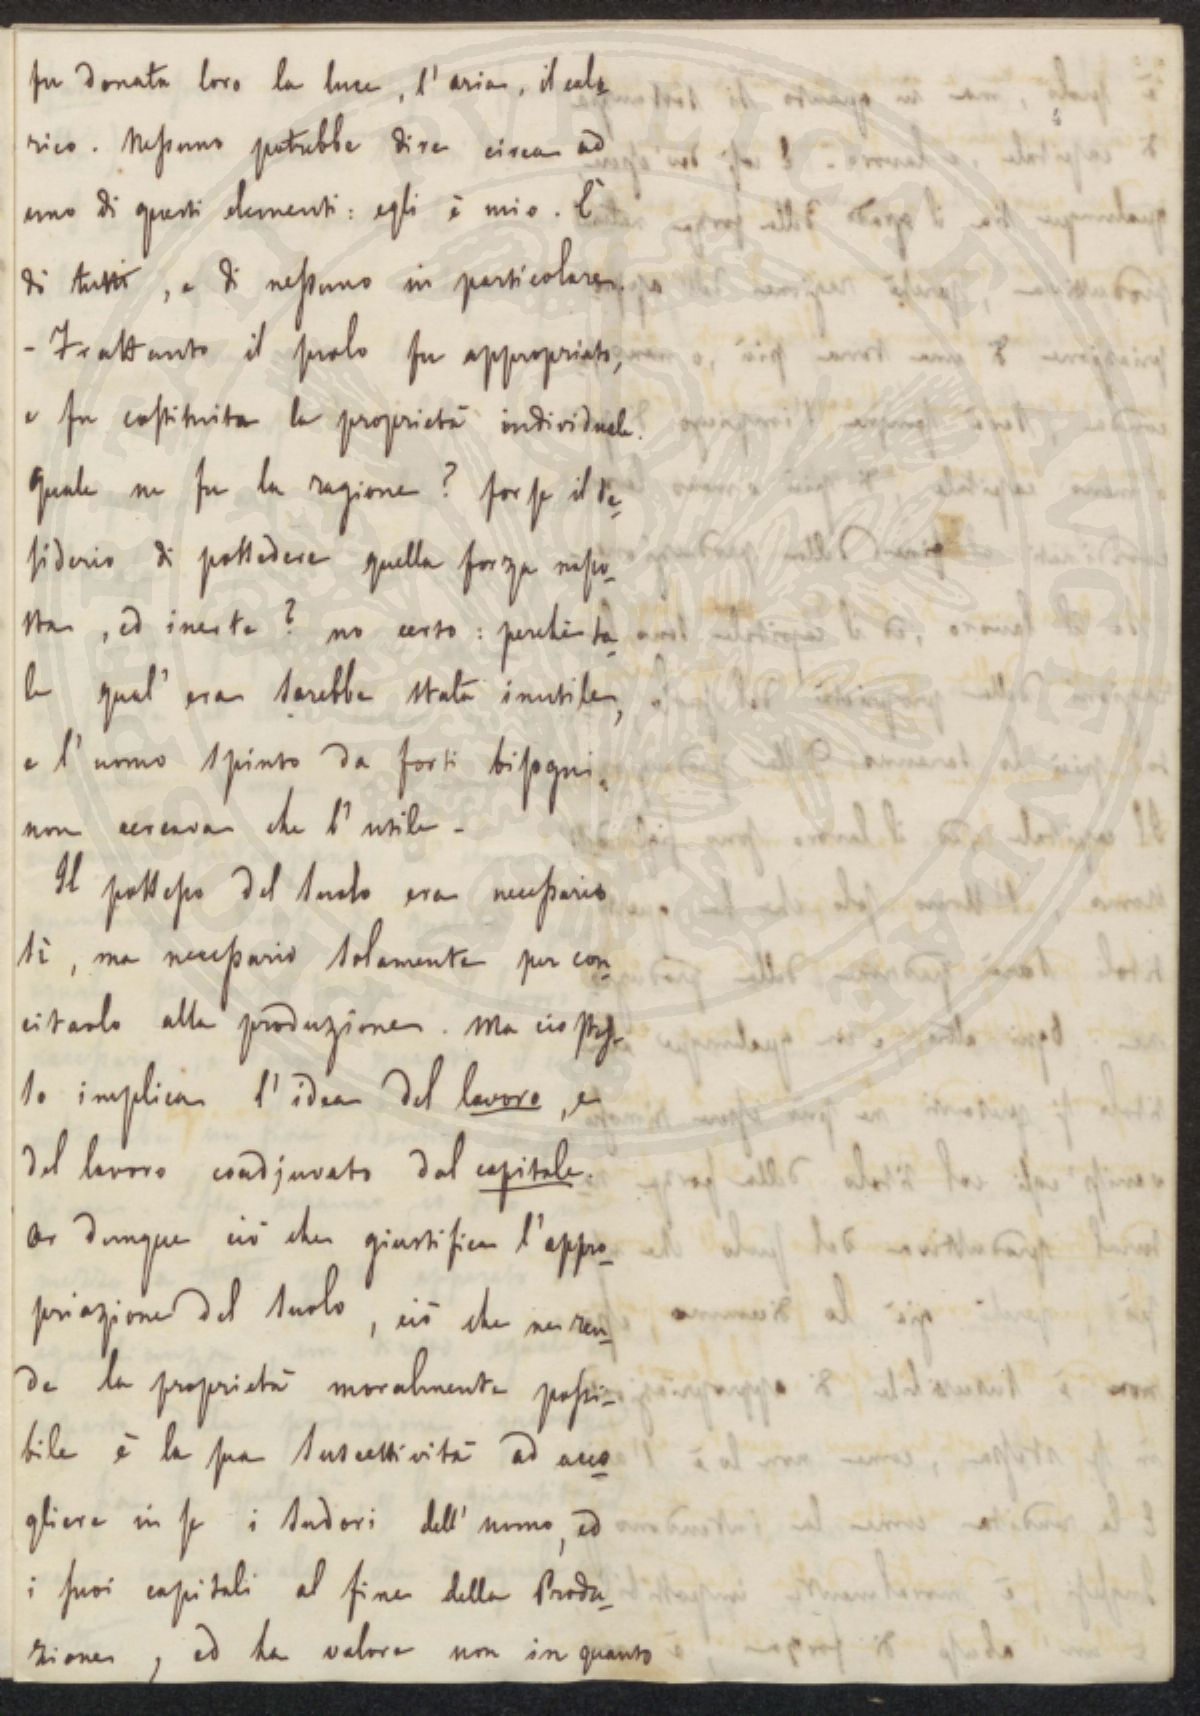 fu donata loro la luce, l'aria, il calo
rico. Nessuno potrebbe dire circa ad
uno di questi elementi: egli è mio. È
di tutti, e di nessuno in particolare.
- Frattanto il suolo fu appropriato,
e fu costituita la proprietà individuale.
Quale ne fu la ragione? forse il de-
siderio di possedere quella forza naso-
sta, ed inerte? no certo: perchè ta-
le qual'era sarebbe stata inutile,
e l'uomo spinto da forti bisogni,
non cercava che l'utile -
Il possesso del suolo era necessario
sì, ma necessario solamente per con-
citarlo alla produzione. Ma ciò stes-
so implica l'idea del lavoro, e
del lavoro coadjuvato dal capitale.
Or dunque ciò che giustifica l'appro-
priazione del suolo, ciò che ne ren-
de la proprietà moralmente possi-
bile è la sua suscettività ad acco-
gliere in se i sudori dell'uomo, ed
i suoi capitali al fine della Produ-
zione, ed ha valore non in quanto